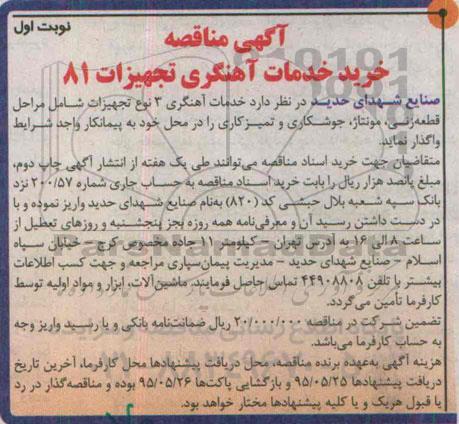 نوبت اول
آگهی مناقصه
خرید خدمات آهنگری تجهیزات ۸۱
صنایع شهدای حدید در نظر دارد خدمات آهنگری ۳ نوع تجهیزات شامل مراحل
قطعه‌زنی، مونتاژ، جوشکاری و تمیزکاری را در محل خود به پیمانکار واجد شرایط
واگذار نماید.
متقاضیان جهت خرید اسناد مناقصه می‌توانند طی یک هفته از انتشار آگهی چاپ دوم،
مبلغ پانصد هزار ریال را بابت خرید اسناد مناقصه به حساب جاری شماره ۲۰۰/۵۷ نزد
بانک سپه شعبه بلال حبشی کد (۸۲۰) به‌نام صنایع شهدای حدید واریز نموده و با
در دست داشتن رسید آن و معرفی‌نامه همه روزه بجز پنجشنبه و روزهای تعطیل از
ساعت ۸ الی ۱۶ به آدرس تهران - کیلومتر ۱۱ جاده مخصوص کرج - خیابان سپاه
اسلام - صنایع شهدای حدید - مدیریت پیمان‌سپاری مراجعه و جهت کسب اطلاعات
بیشتر با تلفن ۴۴۹۰۸۸۰۸ تماس حاصل فرمایند. ماشین‌آلات، ابزار و مواد اولیه توسط
کارفرما تأمین می‌گردد.
تضمین شرکت در مناقصه ۲۰/۰۰۰/۰۰۰ ریال ضمانت‌نامه بانکی و یا رسید واریز وجه
به حساب کارفرما می‌باشد.
هزینه آگهی به‌عهده برنده مناقصه، محل دریافت پیشنهادها محل کارفرما، آخرین تاریخ
دریافت پیشنهادها ۹۵/۰۵/۲۵ و بازگشایی پاکت‌ها ۹۵/۰۵/۲۶ بوده و مناقصه‌گذار در رد
یا قبول هریک و یا کلیه پیشنهادها مختار خواهد بود.